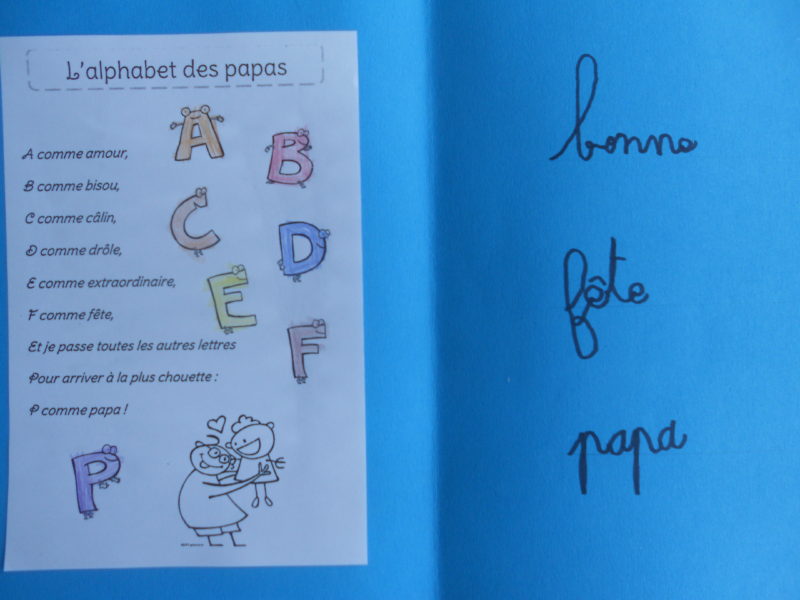 L'alphabet des papas
A comme amour,
B comme bisou,
C comme câlin,
D comme drôle,
E comme extraordinaire,
F comme fête,
Et je passe toutes les autres lettres
Pour arriver à la plus chouette :
P comme papa !
A
B
C
D
E
F
P
bonne
fête
papa